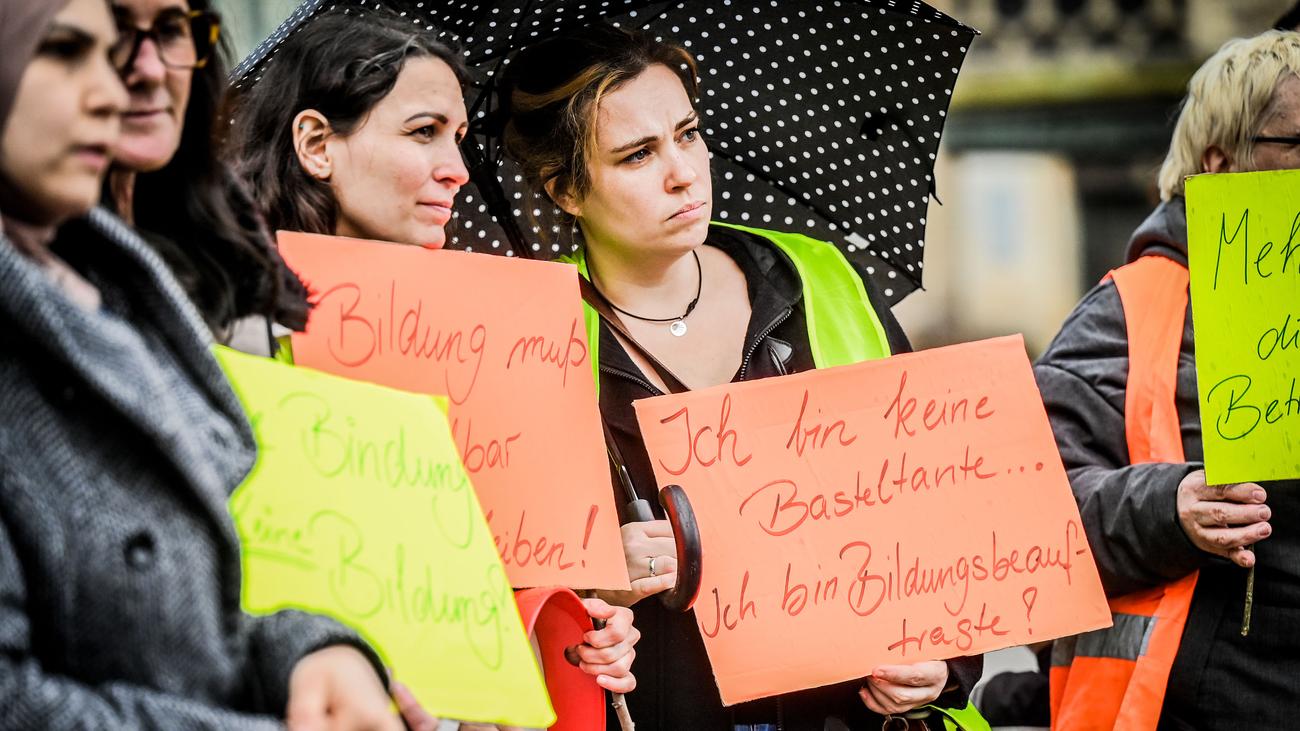 Bildung muß
bar
eiben!
Bindung
keine
Bildung!
Ich bin keine
Basteltante...
Ich bin Bildungsbeauf-
traste!
Meh
di
Betr